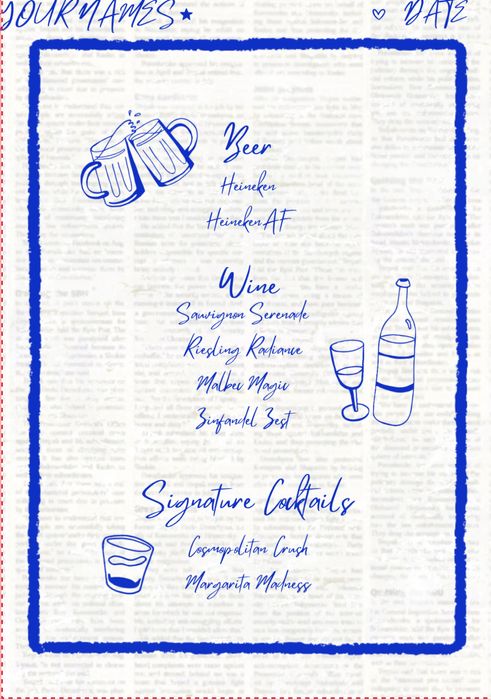 YOUR NAMES ★ ♡ DATE
Beer
Heineken
Heineken AF
Wine
Sauvignon Serenade
Riesling Radiance
Malbec Magic
Zinfandel Zest
Signature Cocktails
Cosmopolitan Crush
Margarita Madness